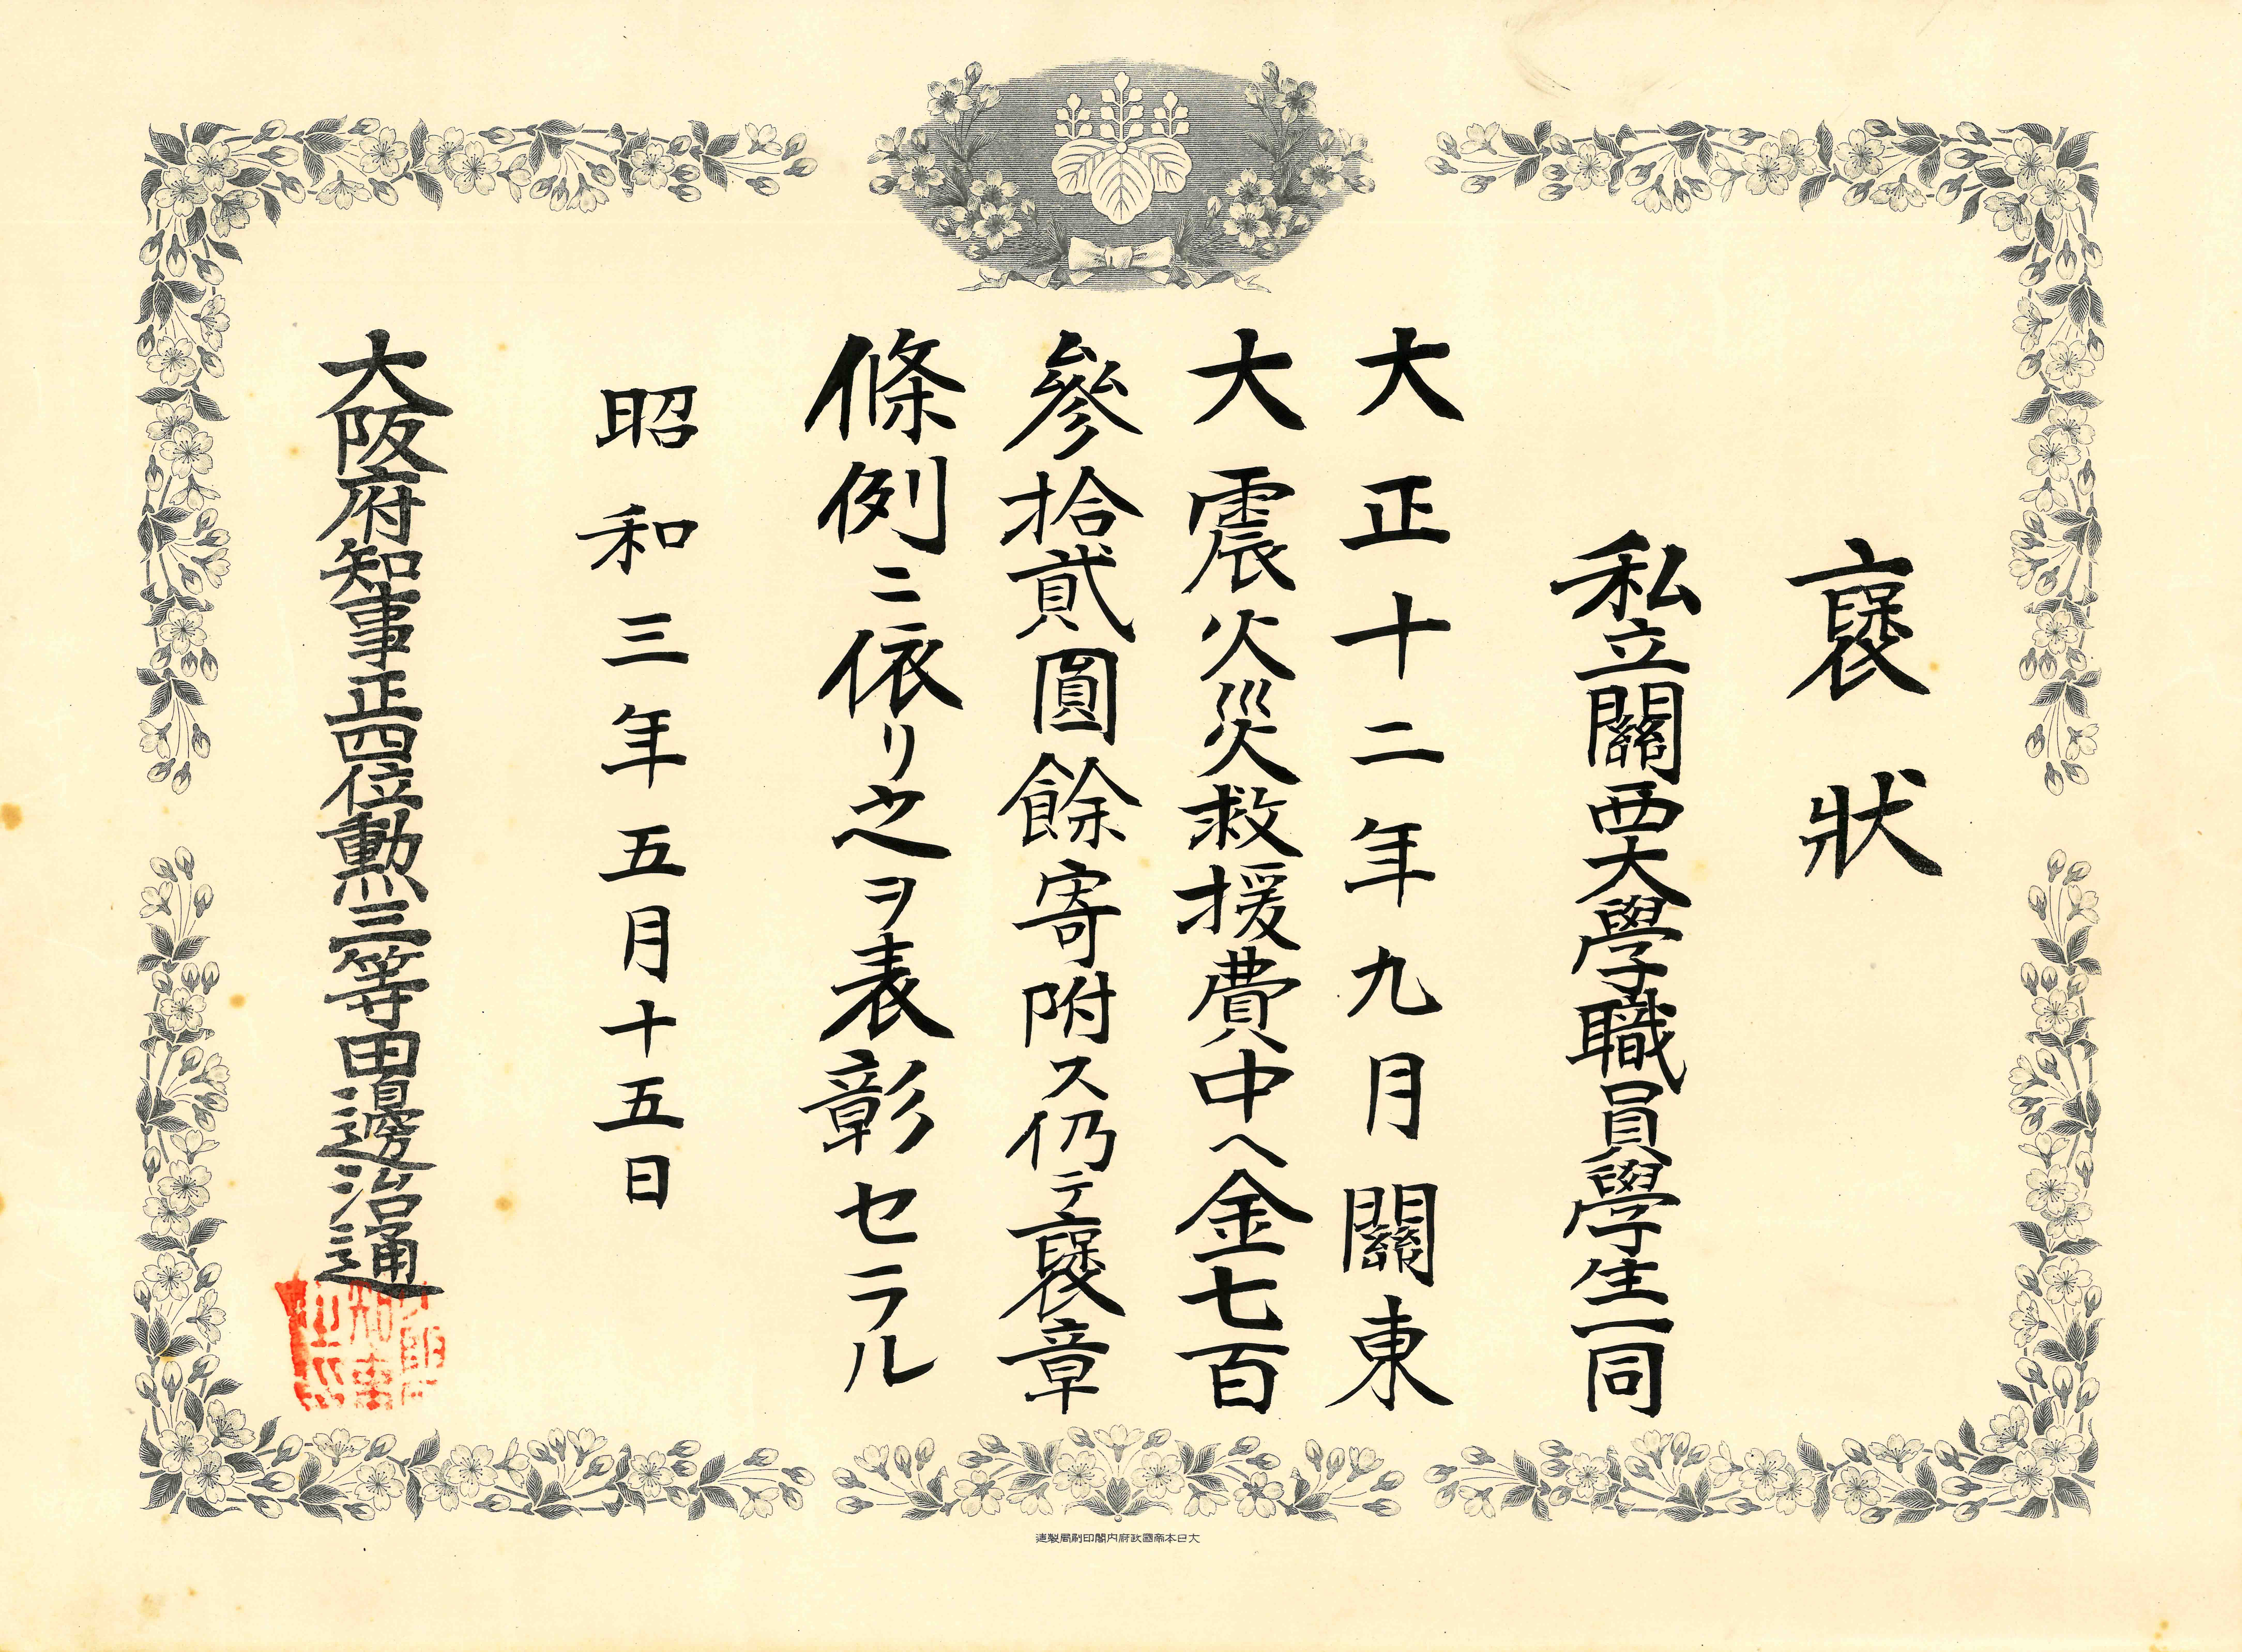 襃狀
私立關西大學職員學生一同
大正十二年九月關東
大震火災救援費中ヘ金七百
參拾貳圓餘寄附ス仍テ襃章
條例ニ依リ之ヲ表彰セラル
昭和三年五月十五日
大阪府知事正四位勳三等田邊治通
大日本帝國政府内閣印刷局製造